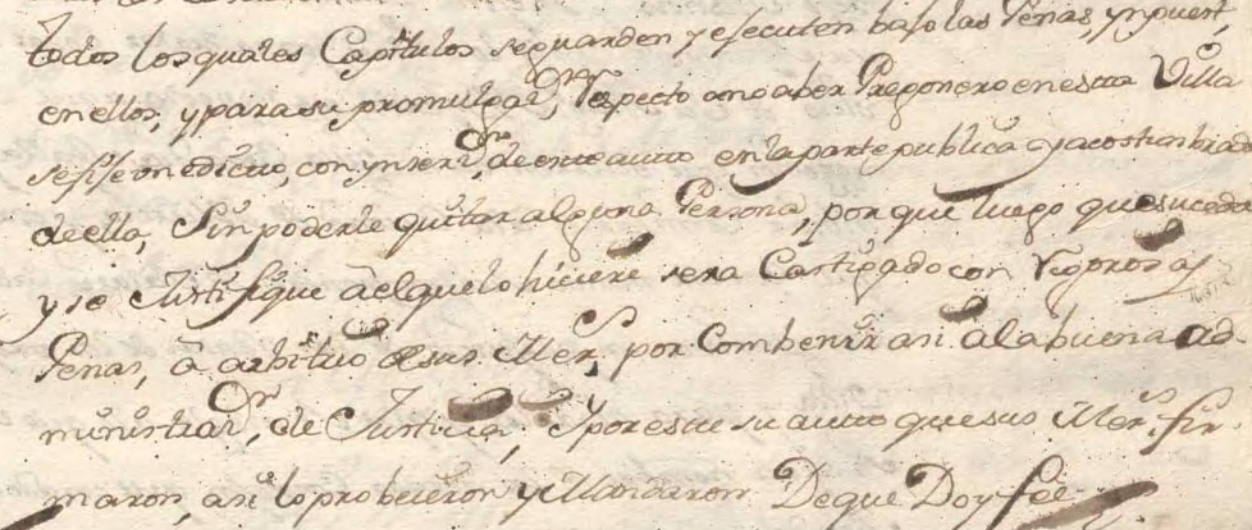 todos los quales Capitulos seguarden y ejecuten bajo las Penas, ynpuest,
en ellos, y para su promulgazon, Respecto ano aber Pregonero en esta Villa
se fije on edicto, con ynserzon, de este auto en la parte publica y acostunbrada
de ella, Sin poderle quitar alguna Persona, por que luego que suceda
y se Justifique â el que lo hiciere sera Castigado con Rigorosas
Penas, â arbitrio de sus Merzs, por Combenir asi ala buena ad-
ministrazon, de Justicia; Y por este su auto que sus Merzs fir-
maron, asi lo probeieron y Mandaron De que Doy feê